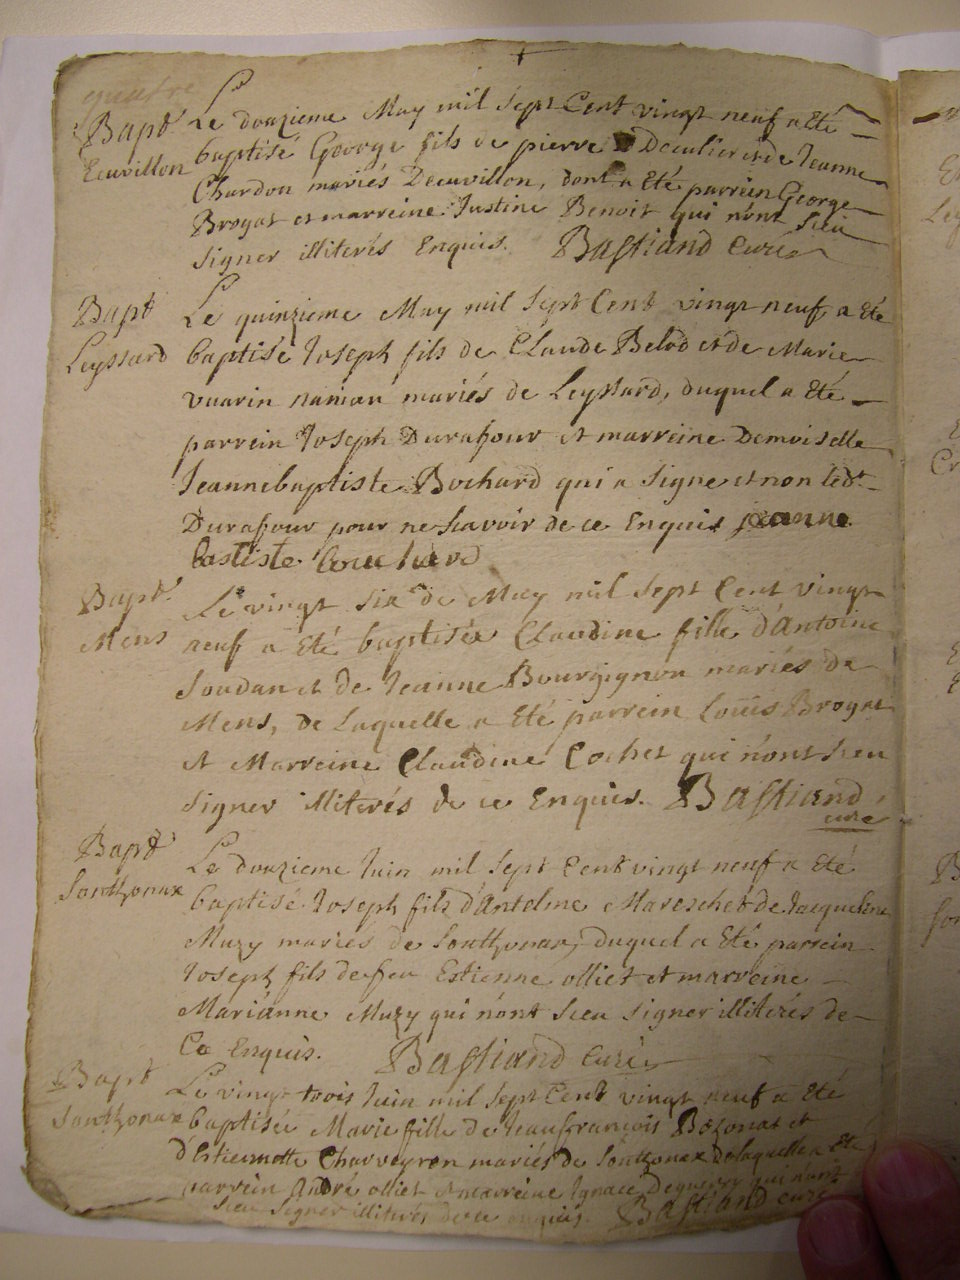 quatre
Bapt
Eeuvillon
Le douzieme May mil Sept Cent vingt neuf a Eté
baptisé George fils de pierre Deculier et de Jeanne
Chardon mariés Deeuvillon, dont a Eté parrein George
Brogat et marreine Justine Benoit qui n'ont Sceu
signer illiterés Enquis. Bastiand Curé
Bapt
Leyssard
Le quinzieme May mil Sept Cent vingt neuf a Eté
baptisé Joseph fils de Claude Belod et de Marie
vuarin mariés de Leyssard, duquel a Eté
parrein Joseph Durafour et marreine Demoiselle
Jeannebaptiste Bochard qui a Signe et non led.t
Durafour pour ne Scavoir de ce Enquis jeanne
bastiste bouchard
Bapt
Mens
Le vingt six de May mil Sept Cent vingt
neuf a Eté baptisée Claudine fille d'Antoine
Joudan et de Jeanne Bourgignon mariés de
Mens, de Laquelle a Eté parrein Louis Brogat
et Marreine Claudine Cochet qui n'ont Sceu
signer illiterés de ce Enquis. Bastiand
curé
Bapt
Sonthonax
Le douzieme Juin mil Sept Cent vingt neuf a Eté
baptisé Joseph fils d'Antelme Mareschet de Jacqueline
Muzy mariés de Sonthonax, duquel a Eté parrein
Joseph fils de feu Estienne olliet et marreine
Marianne Muzy qui n'ont Sceu Signer illiterés de
Ce Enquis. Bastiand Curé
Bapt
Sonthonax
Le vingt trois Juin mil Sept Cent vingt neuf a Eté
baptisée Marie fille de Jeanfrançois Bozonat et
d'Estiennette Charveyron mariés de Sonthonax de laquelle a Eté
parrein André olliet et marreine Ignace qui n'ont
Sceu Signer illiterés de ce enquis. Bastiand curé